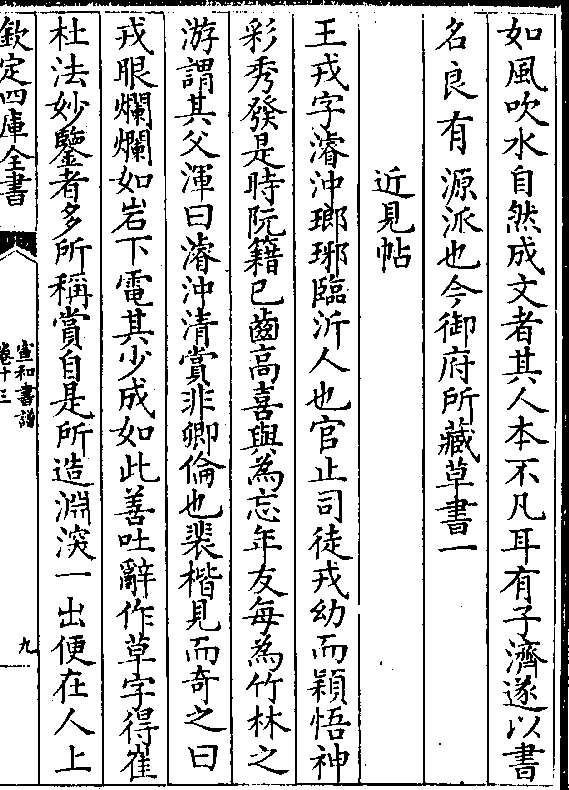 如風吹水自然成文者其人本不凡耳有子濟遂以書
名良有源派也今御府所藏草書一
近見帖
王戎字濬沖瑯琊臨沂人也官止司徒戎幼而穎悟神
彩秀發是時阮籍已齒高喜與為忘年友每為竹林之
游謂其父渾曰濬沖清賞非卿倫也裴楷見而奇之曰
戎眼爛爛如岩下電其少成如此善吐辭作草字得崔
杜法妙鑒者多所稱賞自是所造淵深一出便在人上
欽定四庫全書
宣和書譜
卷十三
九